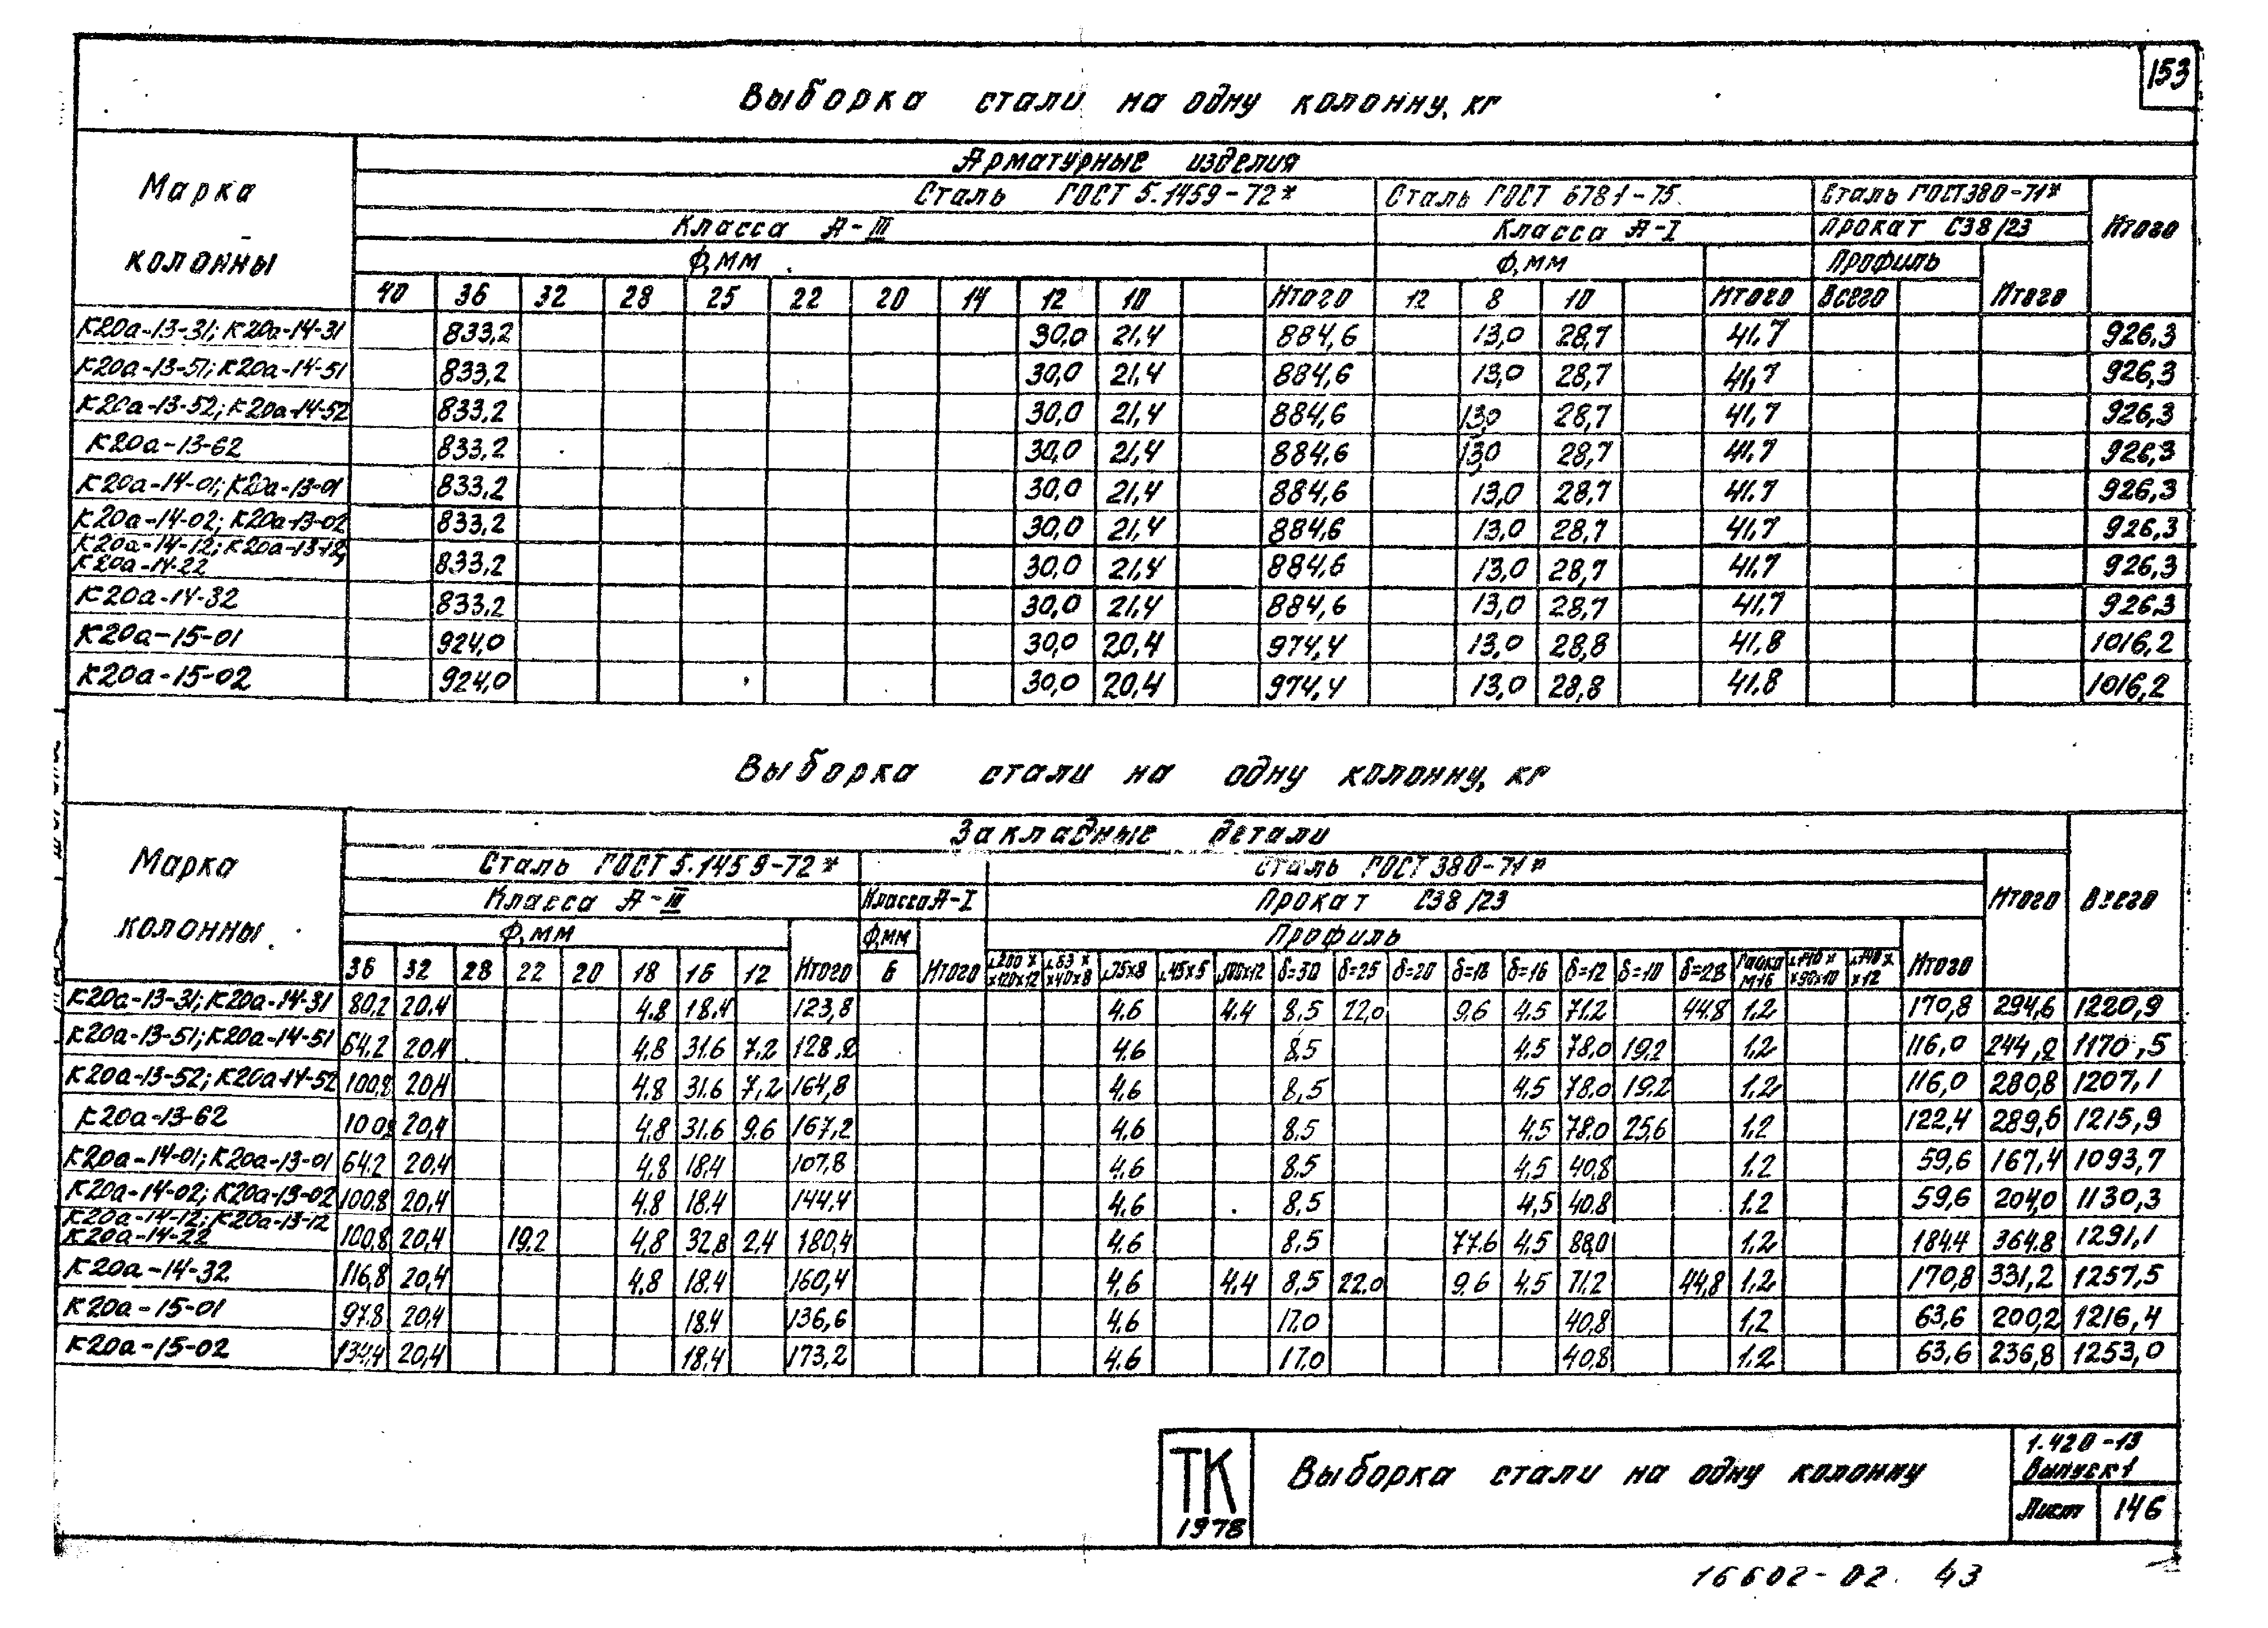 153
Выборка стали на одну колонну, кг
Марка колонны
Арматурные изделия
Сталь ГОСТ 5.1459-72* Сталь ГОСТ 6781-75 Сталь ГОСТ 380-71* Итого
Класса А-III Класса А-I Прокат С38/23
Ф, мм Ф, мм Профиль
40 36 32 28 25 22 20 14 12 10 Итого 12 8 10 Итого Всего Итого
К20а-13-31; К20а-14-31 833,2 30,0 21,4 884,6 13,0 28,7 41,7 926,3
К20а-13-51; К20а-14-51 833,2 30,0 21,4 884,6 13,0 28,7 41,7 926,3
К20а-13-52; К20а-14-52 833,2 30,0 21,4 884,6 13,0 28,7 41,7 926,3
К20а-13-62 833,2 30,0 21,4 884,6 13,0 28,7 41,7 926,3
К20а-14-01; К20а-13-01 833,2 30,0 21,4 884,6 13,0 28,7 41,7 926,3
К20а-14-02; К20а-13-02 833,2 30,0 21,4 884,6 13,0 28,7 41,7 926,3
К20а-14-12; К20а-13-12,
К20а-14-22 833,2 30,0 21,4 884,6 13,0 28,7 41,7 926,3
К20а-14-32 833,2 30,0 21,4 884,6 13,0 28,7 41,7 926,3
К20а-15-01 924,0 30,0 20,4 974,4 13,0 28,8 41,8 1016,2
К20а-15-02 924,0 30,0 20,4 974,4 13,0 28,8 41,8 1016,2
Выборка стали на одну колонну, кг
Марка колонны
Закладные детали
Сталь ГОСТ 5.1459-72* Сталь ГОСТ 380-71* Итого Всего
Класса А-III Класса А-I Прокат С38/23
Ф, мм Ф, мм Профиль
36 32 28 22 20 18 16 12 Итого 6 Итого ∟200××120×12 ∟63××40×8 ∟75×8 ∟45×5 ∟100×12 δ=30 δ=25 δ=20 δ=18 δ=16 δ=12 δ=10 δ=28 Гайка М16 ∟140××90×10 ∟140××12 Итого
К20а-13-31; К20а-14-31 80,2 20,4 4,8 18,4 123,8 4,6 4,4 8,5 22,0 9,6 4,5 71,2 44,8 1,2 170,8 294,6 1220,9
К20а-13-51; К20а-14-51 64,2 20,4 4,8 31,6 7,2 128,2 4,6 8,5 4,5 78,0 19,2 1,2 116,0 244,2 1170,5
К20а-13-52; К20а-14-52 100,8 20,4 4,8 31,6 7,2 164,8 4,6 8,5 4,5 78,0 19,2 1,2 116,0 280,8 1207,1
К20а-13-62 100,8 20,4 4,8 31,6 9,6 167,2 4,6 8,5 4,5 78,0 25,6 1,2 122,4 289,6 1215,9
К20а-14-01; К20а-13-01 64,2 20,4 4,8 18,4 107,8 4,6 8,5 4,5 40,8 1,2 59,6 167,4 1093,7
К20а-14-02; К20а-13-02 100,8 20,4 4,8 18,4 144,4 4,6 8,5 4,5 40,8 1,2 59,6 204,0 1130,3
К20а-14-12; К20а-13-12
К20а-14-22 100,8 20,4 19,2 4,8 32,8 2,4 180,4 4,6 8,5 77,6 4,5 88,0 1,2 184,4 364,8 1291,1
К20а-14-32 116,8 20,4 4,8 18,4 160,4 4,6 4,4 8,5 22,0 9,6 4,5 71,2 44,8 1,2 170,8 331,2 1257,5
К20а-15-01 97,8 20,4 18,4 136,6 4,6 17,0 40,8 1,2 63,6 200,2 1216,4
К20а-15-02 134,4 20,4 18,4 173,2 4,6 17,0 40,8 1,2 63,6 236,8 1253,0
ТК
1978
Выборка стали на одну колонну
1.420-13
Выпуск 1
Лист 146
16602-02 43